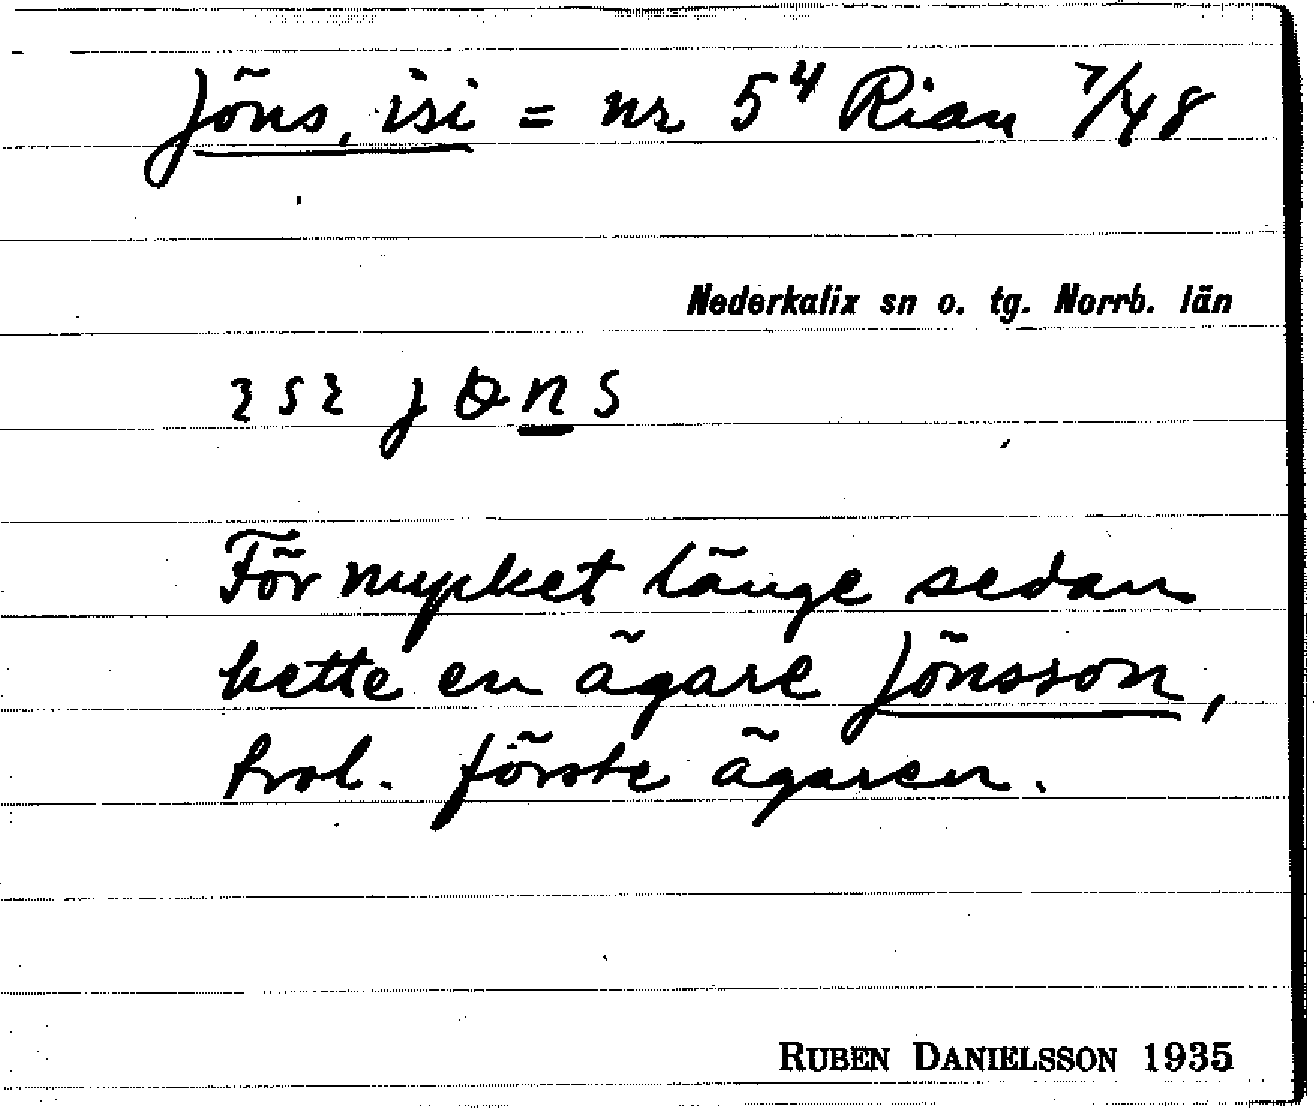 Jöns, isi = nr 5⁴ Rian 7/48
Nederkalix sn o. tg. Norrb. län
ısı jɵns
För mycket länge sedan
hette en ägare Jönsson,
trol. förste ägaren.
RUBEN DANIELSSON 1935